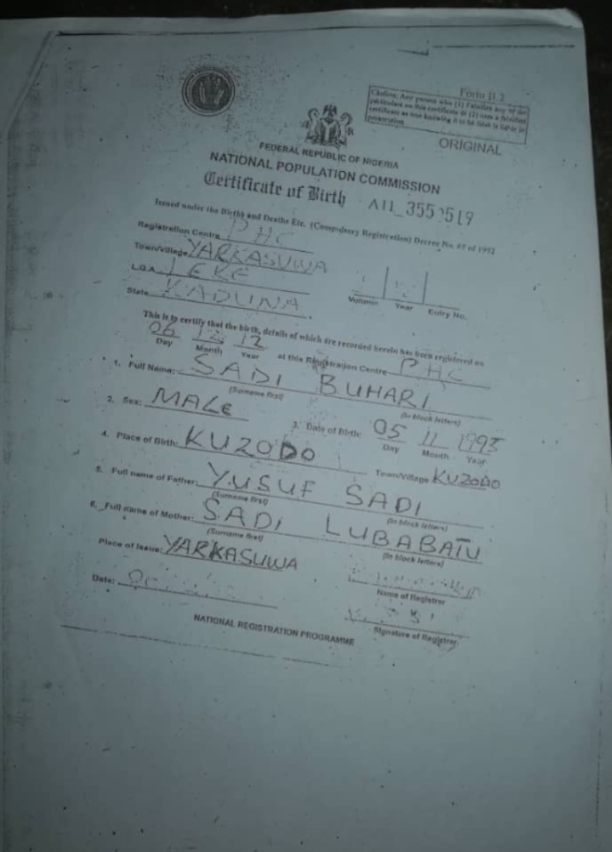 Form B.2
Caution: Any person who (1) Falsifies any of the
particulars on this certificate or (2) uses a falsified
certificate as true knowing it to be false is liable to
prosecution.
ORIGINAL
FEDERAL REPUBLIC OF NIGERIA
NATIONAL POPULATION COMMISSION
Certificate of Birth
Issued under the Births and Deaths Etc. (Compulsory Registration) Decree No. 69 of 1992
Registration Centre PHC
Town/Village YARKASUWA
L.G.A. LERE
State KADUNA
Volume Year Entry No.
This is to certify that the birth, details of which are recorded herein has been registered on
06 12 12 at this Registration Centre PHC
Day Month Year
1. Full Name: SADI BUHARI
(Surname first) (In block letters)
2. Sex: MALE 3. Date of Birth: 05 11 1993
Day Month Year
4. Place of Birth: KUZODO Town/Village KUZODO
5. Full name of Father: YUSUF SADI
(Surname first) (In block letters)
6. Full name of Mother: SADI LUBABATU
(Surname first) (In block letters)
Place of Issue: YARKASUWA
Name of Registrar
Date:
Signature of Registrar
NATIONAL REGISTRATION PROGRAMME